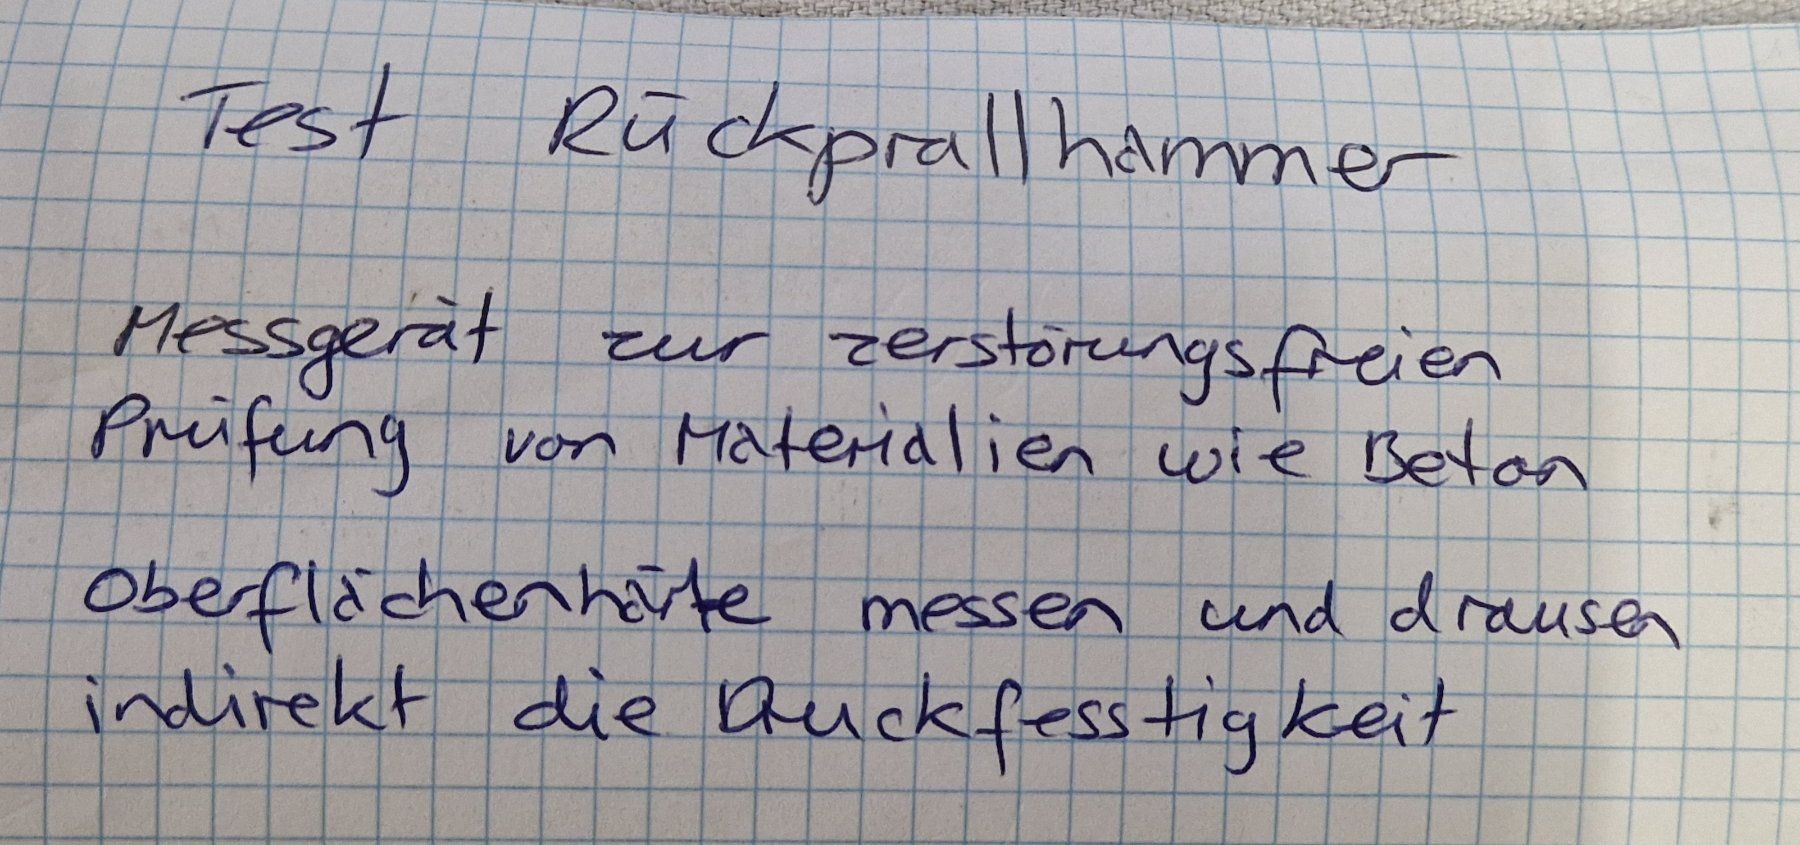 Test Rückprallhammer
Messgerät zur zerstörungsfreien
Prüfung von Materialien wie Beton
Oberflächenhärte messen und drausen
indirekt die Druckfesstigkeit